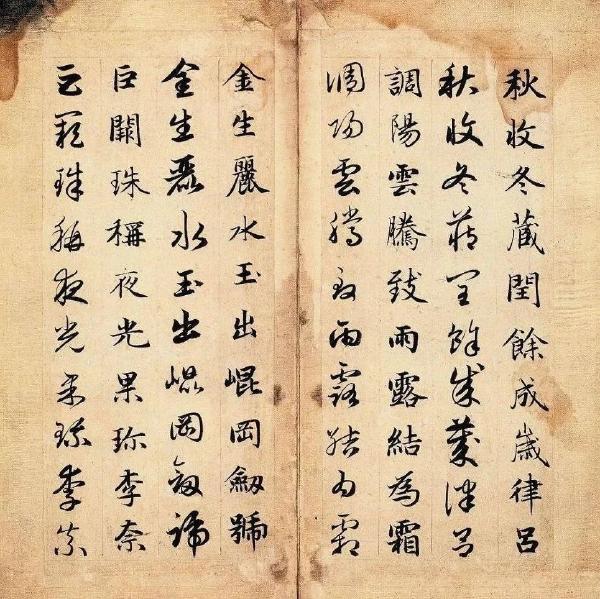 秋收冬蔵閏餘成歲律呂
秋收冬蔵閏餘成歲律呂
調陽雲騰致雨露結為霜
調陽雲騰致雨露結為霜
金生麗水玉出崐岡劔號
金生麗水玉出崐岡劔號
巨闕珠稱夜光果珍李奈
巨闕珠稱夜光果珍李柰